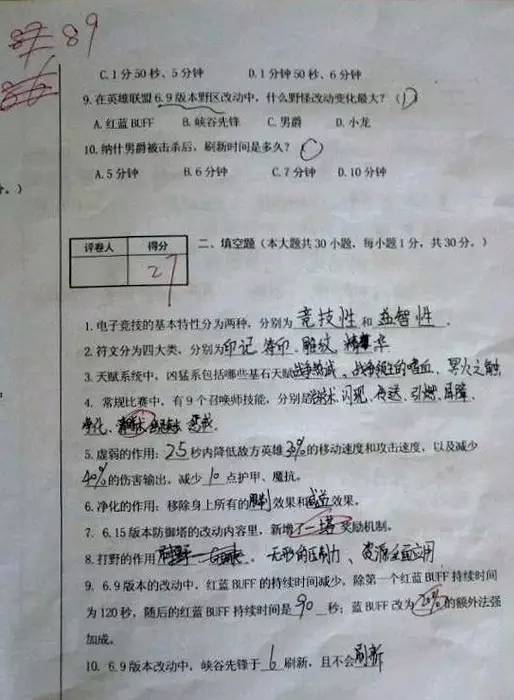 89
C.1分50秒、5分钟 D.1分钟50秒、6分钟
9.在英雄联盟6.9版本野区改动中，什么野怪改动变化最大？（D）
A.红蓝BUFF B.峡谷先锋 C.男爵 D.小龙
10.纳什男爵被击杀后，刷新时间是多久？
A.5分钟 B.6分钟 C.7分钟 D.10分钟
评卷人 得分
27
二、填空题（本大题共30小题，每小题1分，共30分。）
1.电子竞技的基本特性分为两种，分别为 竞技性 和 益智性 。
2.符文分为四大类，分别为印记、符印、雕纹、精华
3.天赋系统中，凶猛系包括哪些基石天赋战争热诚、战争领主的嗜血、冥火之触
4. 常规比赛中，有9个召唤师技能，分别是治疗术、闪现、传送、引燃、屏障、
净化、惩戒。
5.虚弱的作用：2.5秒内降低敌方英雄30%的移动速度和攻击速度，以及减少
40%的伤害输出。减少10点护甲、魔抗。
6.净化的作用：移除身上所有的限制效果和减益效果。
7. 6.15版本防御塔的改动内容里，新增了一塔奖励机制。
8.打野的作用 。无形的压制力、资源全面应用
9. 6.9版本的改动中，红蓝BUFF的持续时间减少，除第一个红蓝BUFF持续时间
为120秒，随后的红蓝BUFF持续时间是 90 秒；蓝BUFF改为20%的额外法强
加成。
10. 6.9版本改动中，峡谷先锋于 6 刷新，且不会刷新